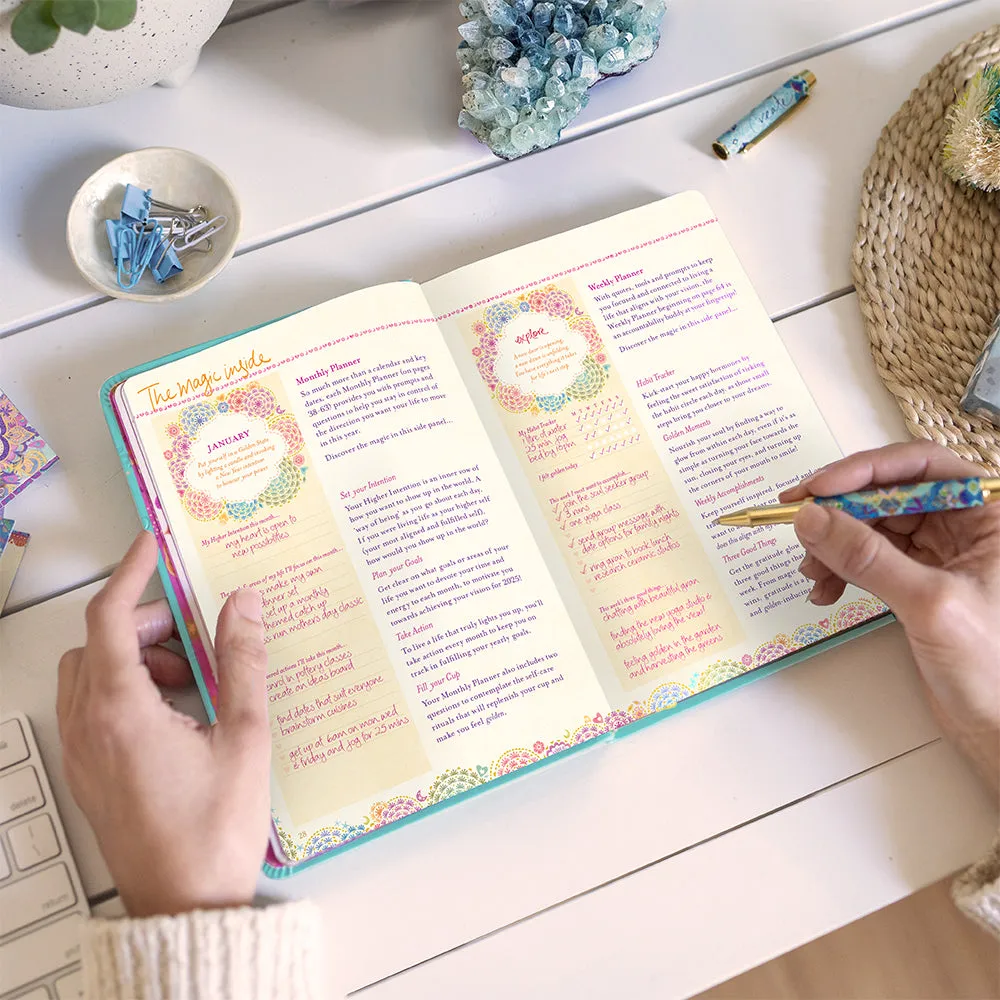 The magic inside
JANUARY
Put yourself in a Golden State
by lighting a candle and creating
a New Year statement
to honour your power.
My Higher Intention this month...
my heart is open to
new possibilities
areas of my life I'll focus on this month...
make my own
set up a monthly
themed catch up
run mother's day classic
actions I'll take this month...
enrol in pottery classes
create an ideas board
find dates that suit everyone
brainstorm cuisines
get up at 6am on mon, wed
& friday and jog for 25 mins
28
Monthly Planner
So much more than a calendar and key
dates, each Monthly Planner (on pages
38-63) provides you with prompts and
questions to help you stay in control of
the direction you want your life to move
in this year.
Discover the magic in this side panel...
Set your Intention
Your Higher Intention is an inner vow of
how you want to show up in the world. A
'way of being' as you go about each day.
If you were living life as your higher self
(your most aligned and fulfilled self),
how would you show up in the world?
Plan your Goals
Get clear on what areas of your
life you want to devote your time and
energy to each month, to motivate you
towards achieving your vision for 2025!
Take Action
To live a life that truly lights you up, you'll
take action every month to keep you on
track in fulfilling your yearly goals.
Fill your Cup
Your Monthly Planner also includes two
questions to contemplate the self-care
rituals that will replenish your cup and
make you feel golden.
explore
A new door is opening,
a new dream is unfolding.
Embrace everything it takes
for life's next step.
My Habit Tracker
1 litre of water
25 min jog
bed by 9pm
I felt golden today
This week I most want to accomplish...
join the soul seeker group
3 runs
one yoga class
send group message with
date options for family nights
ring aran to book lunch
research ceramic studios
This week's three good things...
chatting with beautiful aran
finding the new yoga studio &
absolutely loving the view!
feeling golden in the garden
and harvesting the greens
Weekly Planner
With quotes, tools and prompts to keep
you focused and connected to living a
life that aligns with your vision, the
Weekly Planner beginning on page 64 is
an accountability buddy at your fingertips!
Discover the magic in this side panel...
Habit Tracker
Kick-start your happy hormones by
feeling the sweet satisfaction of ticking
the habit circle each day, as those small
steps bring you closer to your dreams.
Golden Moments
Nourish your soul by finding a way to
glow from within each day, even if it's as
simple as turning your face towards the
sun, closing your eyes, and turning up
the corners of your mouth to smile!
Weekly Accomplishments
Keep yourself inspired, focused
want to
does this align with
Three Good Things
Get the gratitude glow
three good things that
week. From magic
wins, gratitude is a
and golden-inducing
create
delete
return
shift